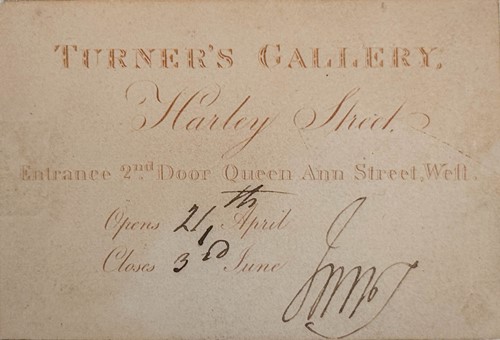 TURNER'S GALLERY,
Harley Street,
Entrance 2nd Door Queen Ann Street, West.
Opens 21th April
Closes 3rd June
JMWT